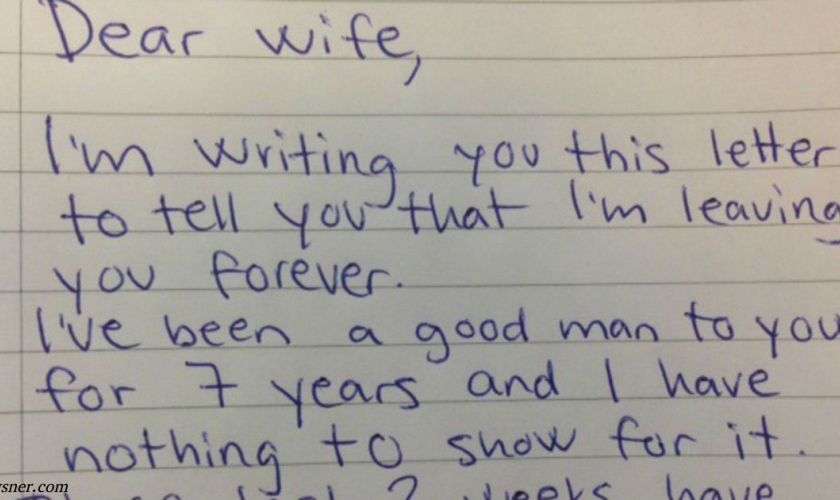 Dear wife,
I'm writing you this letter
to tell you that I'm leaving
you forever.
I've been a good man to you
for 7 years and I have
nothing to show for it.
2 weeks have
sner.com